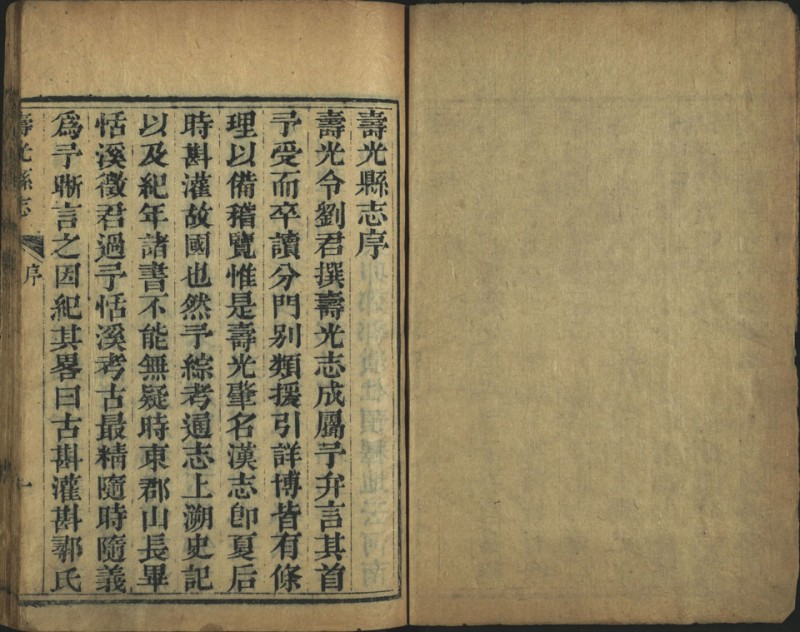 壽光縣志序
壽光令劉君撰壽光志成屬予弁言其首
予受而卒讀分門別類援引詳博皆有條
理以備稽覽惟是壽光肇名漢志卽夏后
時斟灌故國也然予綜考通志上溯史記
以及紀年諸書不能無疑時東郡山長畢
恬溪徵君過予恬溪考古最精隨時隨義
為予晰言之因紀其畧曰古斟灌斟鄩氏
壽光縣志
序
一